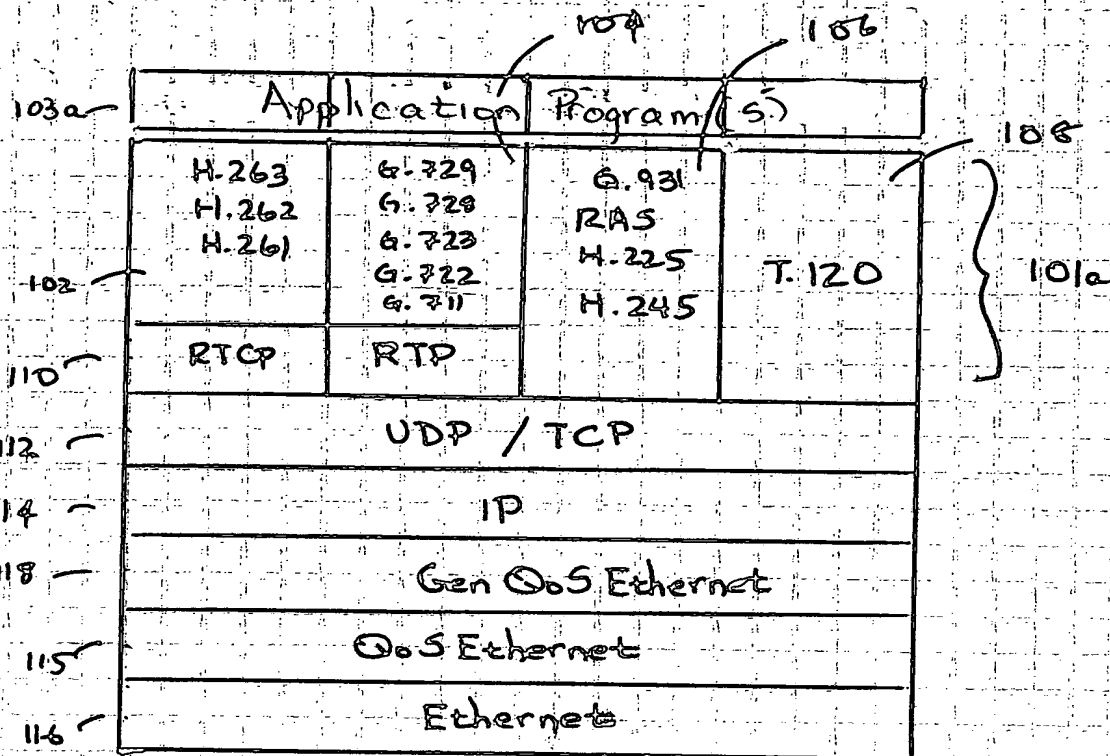 104
106
103a
Application Program(s)
108
H.263
H.262
H.261
G.729
G.728
G.723
G.722
G.711
Q.931
RAS
H.225
H.245
T.120
101a
102
110
RTCP
RTP
112
UDP / TCP
114
IP
118
Gen QoS Ethernet
115
QoS Ethernet
116
Ethernet